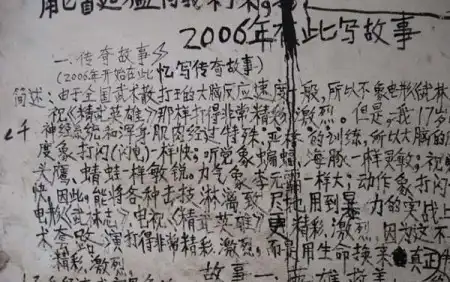 2006年在此写故事
一、传奇故事
(2006年开始在此忆写传奇故事)
简述:由于全国武术散打王的大脑反应速度一般,所以不象电影《少林
视《精武英雄》那样打得非常精彩、激烈。但是,我17岁
神经系统和浑身肌肉经过特殊、严格的训练,所以大脑的
度象打闪(闪电)一样快;听觉象蝙蝠、海豚一样灵敏;视
头鹰、蜻蜓一样敏锐。力气象李元霸一样大;动作象打闪
快。因此,能将各种击技淋漓致尽地用到暴力的实战上
电影《武林志》电视《精武英雄》更精彩、激烈。因为这不
术套路、演打得非常精彩、激烈。而是用生命换来真正
精彩、激烈。
故事一、英雄